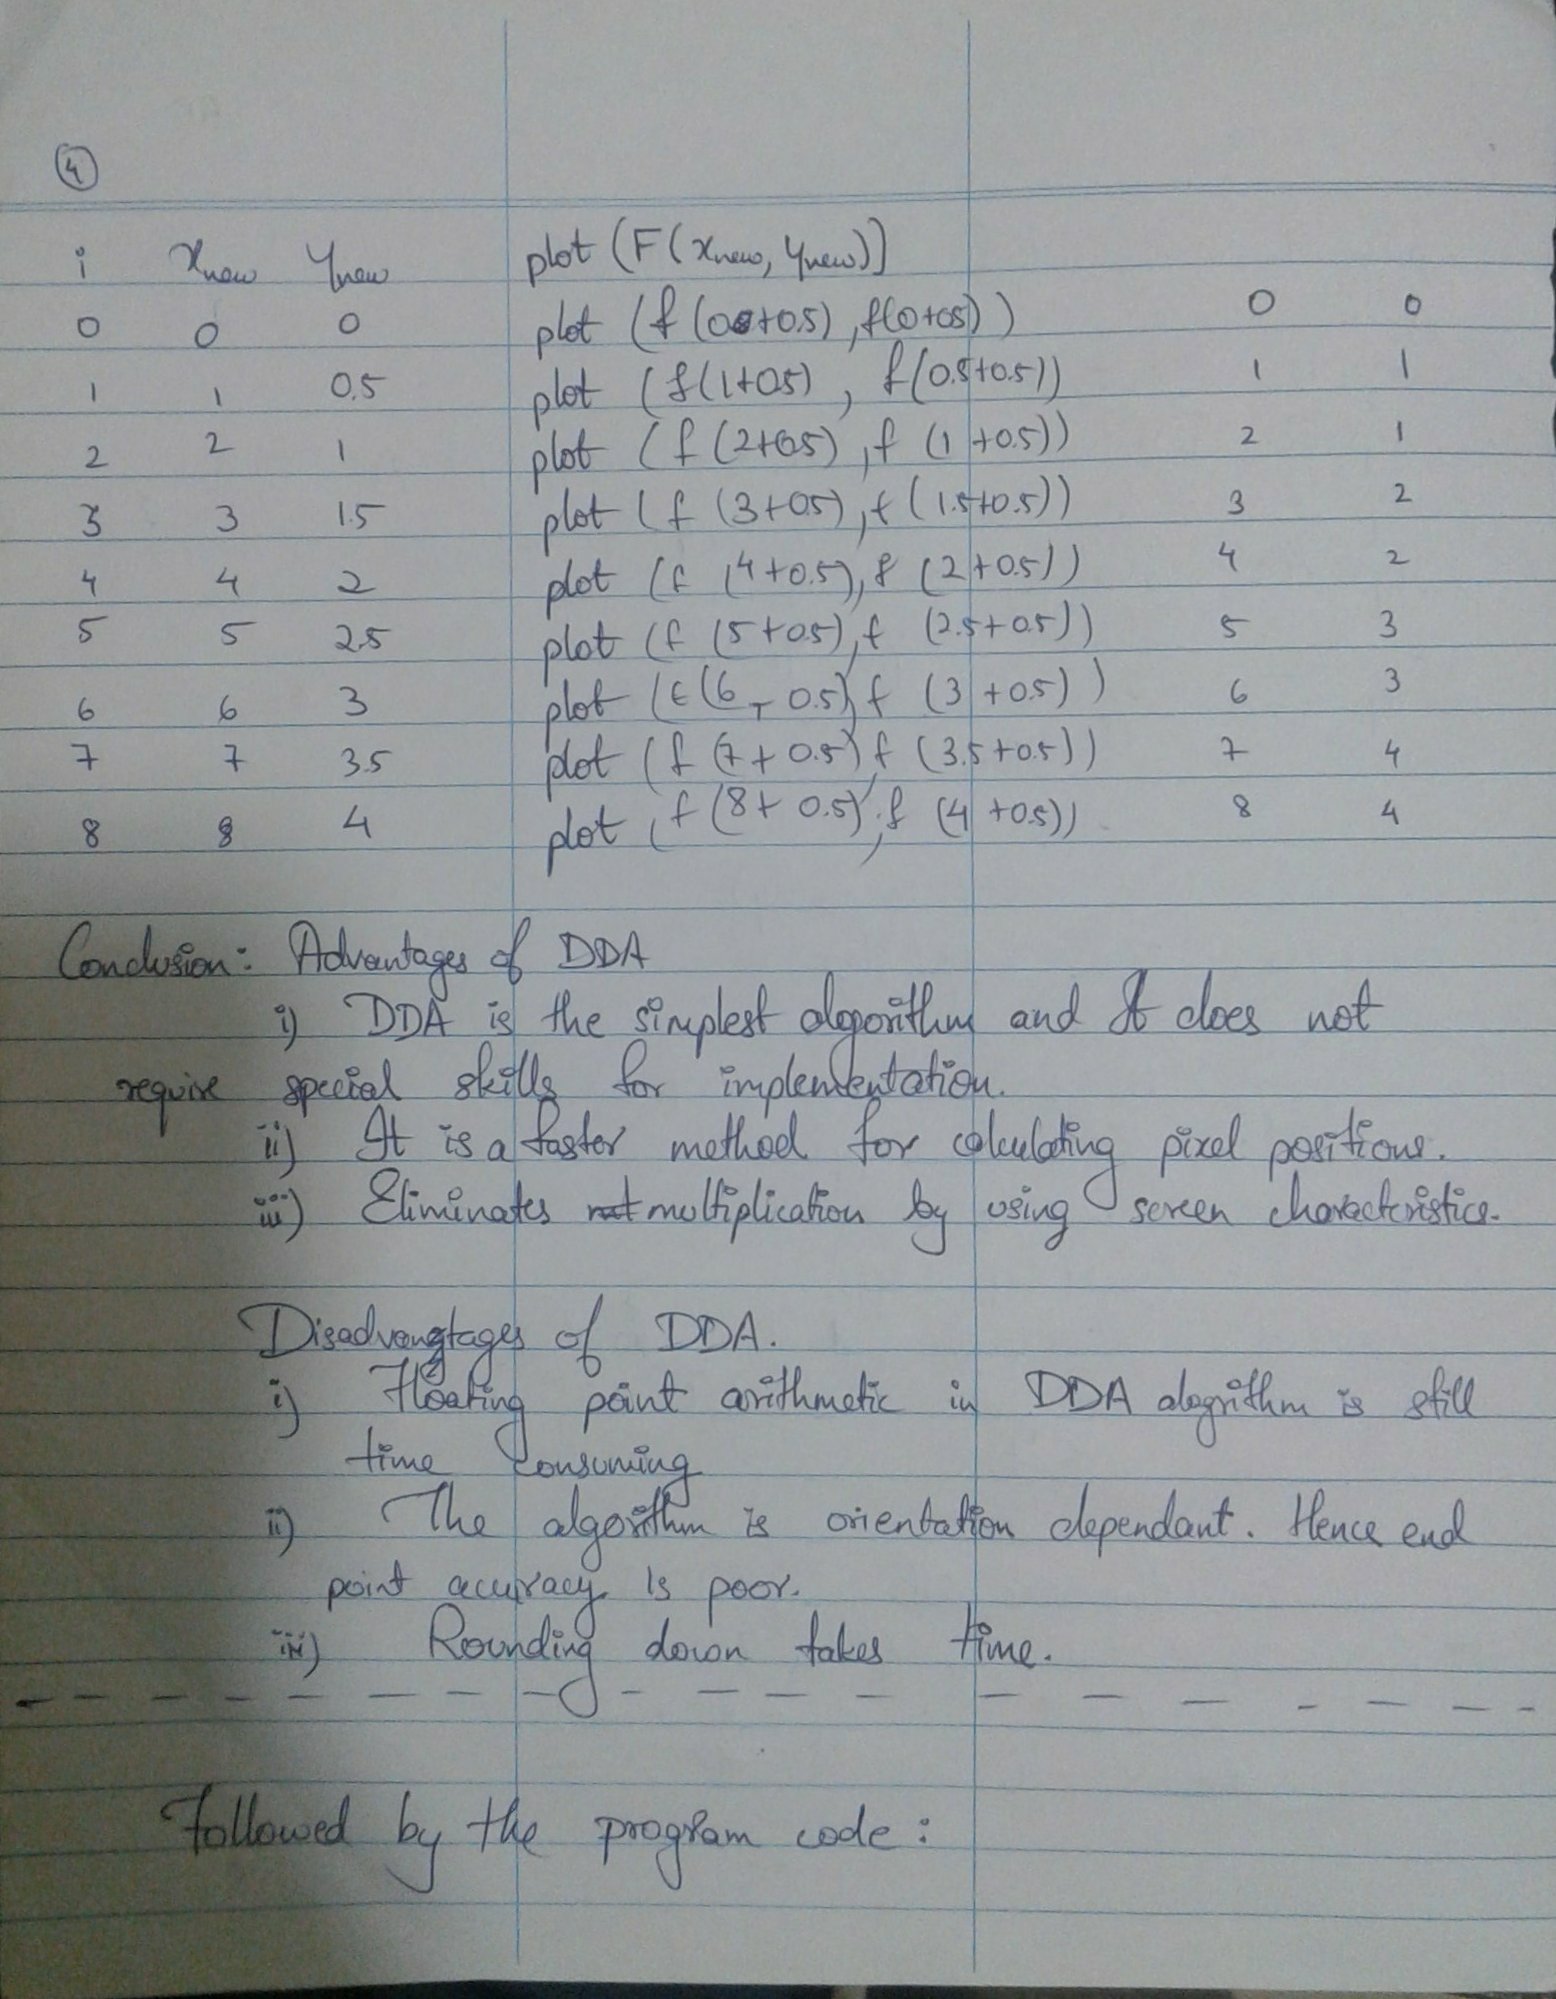 4
i xnew ynew plot (F(xnew, ynew)]
0 0 0 plot (f(0+0.5), f(0+0.5)) 0 0
1 1 0.5 plot (f(1+0.5), f(0.5+0.5)) 1 1
2 2 1 plot (f(2+0.5), f(1+0.5)) 2 1
3 3 1.5 plot (f(3+0.5), f(1.5+0.5)) 3 2
4 4 2 plot (f(4+0.5), f(2+0.5)) 4 2
5 5 2.5 plot (f(5+0.5), f(2.5+0.5)) 5 3
6 6 3 plot (f(6+0.5), f(3+0.5)) 6 3
7 7 3.5 plot (f(7+0.5), f(3.5+0.5)) 7 4
8 8 4 plot (f(8+0.5), f(4+0.5)) 8 4
Conclusion: Advantages of DDA
i) DDA is the simplest algorithm and It does not
require special skills for implementation.
ii) It is a faster method for calculating pixel positions.
iii) Eliminates multiplication by using screen characteristics.
Disadvangtages of DDA.
i) Floating point arithmetic in DDA alogrithm is still
time consuming
ii) The algorithm is orientation dependant. Hence end
point accuracy is poor.
iii) Rounding down takes time.
Followed by the program code: